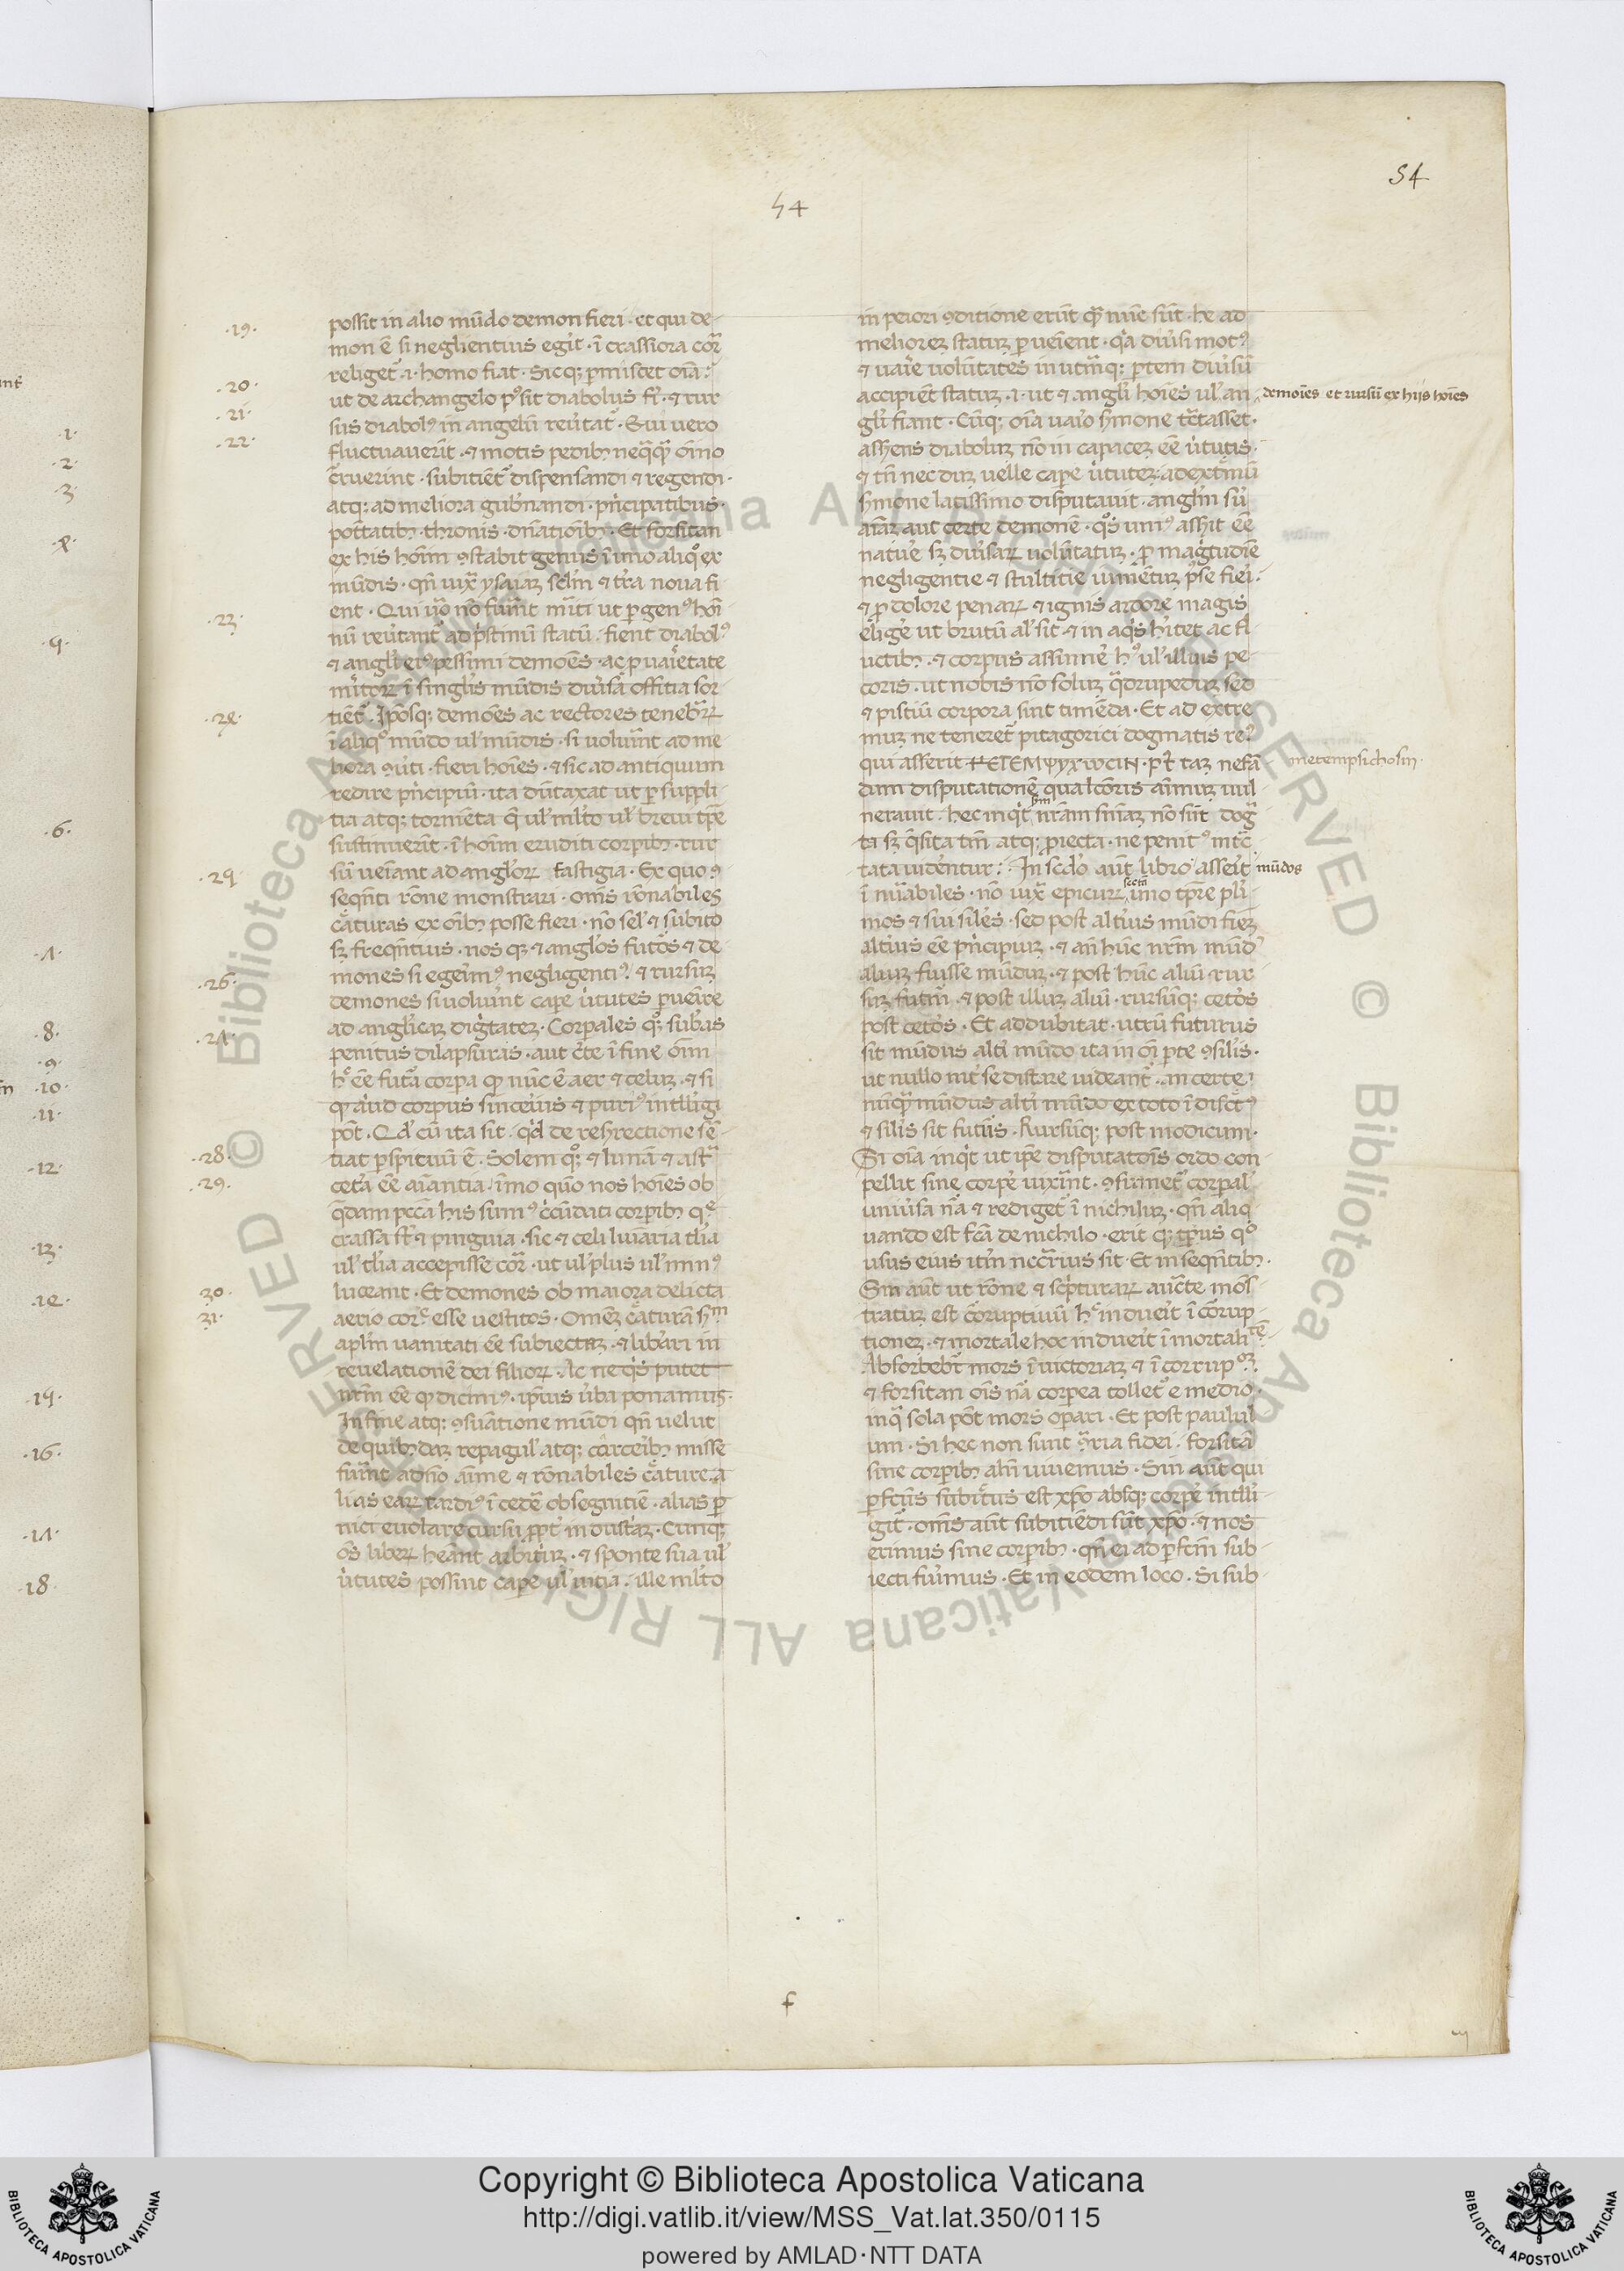 54
54
possit in alio mũdo demon fieri · et qui de-
mon ẽ si neglientius egit · ĩ crassiora cor̃
religet̃ · i · homo fiat · Sicq; pmiscet oĩa ·
ut de archangelo poͦsit diabolus fi̾ · ⁊ rur
sus diabolꝰ in angelũ reu̾tat̃ · Qui uero
fluctuauerĩt · ⁊ motis pedibꝫ neq̃q̃ oĩno
c̃ruerint · subiciẽt̃ dispensandi ⁊ regendi ·
atq; ad meliora gub̾nandi · pñcipatibus ·
pott̃atibꝫ · thronis · dñatioñibꝫ · Et forsitan
ex his hoĩm ꝯstabit genus ĩ uno aliqͦ ex
mũdis · qñ iux̃ ysaiaꝫ celũ ⁊ tr̃a noua fi
ent · Qui ũo nõ fuer̃int m̃iti ut p genꝰ hoĩ
nũ reu̾tant̃ ad pristinũ statũ · fient diabolꝰ
⁊ angl̾i eiꝰ pessimi demoẽs · ac p uaĩetate
m̾itoꝝ ĩ singl̾is mũdis diu̾sã offitia sor
tiẽt̃ · Ip̃osq; demoẽs ac rectores teneb̃rꝝ
ĩ aliqͦ mũdo ul̾ mũdis · si uolue̾int ad me
liora ꝯuti · fieri hoĩes · ⁊ sic ad antiquum
redire pñcipiũ · ita dũtaxat ut p suppli-
tia atq; tormẽta q̃ ul̾ ml̾to ul̾ breui tp̃e
sustinuerĩt · ĩ hoĩm eruditi corpibꝫ · rur
sũ ueĩant ad angl̾oꝝ fastigia · Ex quo ꝯ
seqñti rõne monstrari · om̃s rõnabiles
cr̃aturas ex oĩbꝫ posse fieri · nõ sel̾ ⁊ subito
sꝫ freqñtius · nos qꝫ ⁊ angl̾os futos̃ ⁊ de-
mones si egeĩmꝰ negligentiꝰ · ⁊ rursuꝫ
demones si uolue̾int cape u̾tutes pueĩre
ad angl̾icaꝫ digñtateꝫ · Corpales qͦꝫ subas̃
penitus dilapsuras · aut c̾te ĩ fine oĩm
hͦ ẽe futa̾ corpa qͩ nũc ẽ aer ⁊ celuꝫ · ⁊ si
qͩ aliud corpus sinceĩus ⁊ puriꝰ intll̾igi
põt · Qd̾ cũ ita sit · qd̾ de resrectione sẽ-
tiat pspicuũ ẽ · Solem qͦꝫ ⁊ lunã ⁊ ast̃
cetã ẽe aĩantia · ĩmo quõ nos hoĩes ob
q̃dam pccã his sumꝰ c̾cũdati corpibꝫ qͤ
crassa st̃ ⁊ pinguia · sic ⁊ celi luĩaria tl̾ia
ul̾ tl̾ia accepisse cor̃ · ut ul̾ plus ul̾ minꝰ
luceant · Et demones ob maiora delicta
aerio corͤ esse uestitos · Omeꝫ cr̃aturã sm̃
apl̾m uanitati ẽe subiectaꝫ · ⁊ libãri in
reuelationẽ dei filioꝝ · Ac ne qͥs putet
nrm̃ ẽe qͩ dicimꝰ · ipĩus u̾ba ponamus ·
In fine atq; ꝯsũatione mũdi qñ uelut
de quibꝫdaꝫ repagul̾ atq; carceĩbꝫ misse
fuer̃int ad ño aĩme ⁊ rõnabiles cr̃ature · a
lias eaꝝ tardiꝰ ĩ cedẽ ob segnitiẽ · alias p
nici euolare cursu ppt̃ industriaꝫ · Cunq;
oẽs liberꝝ heãnt arbitriuꝫ · ⁊ sponte sua ul̾
u̾tutes possint cape ul̾ uitia · ille ml̾to
·19·
·20·
·21·
·22·
·23·
·24·
·25·
·26·
·27·
·28·
·29·
·30·
·31·
in peiori ꝯditione erũt q̃ nũc sũt · he ad
melioreꝫ statuꝫ pueĩent · qa̾ diu̾si motꝰ
⁊ uaĩe uolũtates in utruq; ptem diu̾sũ
accipiẽt statuꝫ · i · ut ⁊ angl̾i hoĩes ul̾ an
gl̾i fiant · Cũq; oĩa uaĩo smone tr̃tasset ·
asserens diaboluꝫ nõ in capaceꝫ ẽe u̾tutis ·
⁊ tñ nec duꝫ uelle cape u̾tuteꝫ · ad extm̃ũ
smone latissimo disputauit · angl̾m siu̾
aĩaꝫ aut certe demonẽ · qͦs uniꝰ asserit ẽe
natur̾e sꝫ diu̾saꝝ uolũtatuꝫ · p magĩtudĩe
negligentie ⁊ stultitie iumẽtuꝫ posse fieri ·
⁊ p dolore penaꝝ ⁊ ignis ardore magis
elige̾ ut brutũ al̾ sit · ⁊ in aqͥs hi̾tet ac fl
uctibꝫ · ⁊ corpus assume̾ hͦ ul̾ illius pe
coris · ut nobis nõ soluꝫ q̃drupeduꝫ sed
⁊ pisciũ corpora sint timẽda · Et ad extre
muꝫ ne teneret̃ pitagorici dogmatis reꝰ
qui asserit ΜΕΤΕΜΨΥΧΩϹΙΝ · pͦt taꝫ nefã
dam disputationẽ qua lcõris aĩmuꝫ uul
nerauit · hec inqͥt sm̃ nrãm sniãꝫ nõ sũt dog̃
ta sꝫ q̃sita tm̃ atq; piecta · ne penitꝰ int̃c
tata uidẽntur · In scdo̾ aũt libro asserit
ĩ nuãbiles · nõ iux̃ epicurꝝ uno tp̃re plĩ
mos ⁊ sui sil̾es · sed post alti̾us mũdi fineꝫ
alti̾us ẽe pñcipiuꝫ · ⁊ añ hũc nrm̃ mũdꝰ
aliuꝫ fuisse mũduꝫ · ⁊ post hũc aliũ rur
suꝫ futm̃ · ⁊ post illuꝫ aliũ · rursũq; cetos̃
post cetos̃ · Et addubitat · utrũ futurus
sit mũdus alti̾ mũdo ita in oĩ pte ꝯsil̾is ·
ut nullo int̾ se distare uideant̃ · an certe
nũq̃ mũdus alti̾ mũdo ex toto ĩ discretꝰ
⁊ sil̾is sit futũs · Rursũq; post modicum ·
Si oĩa inqͥt ut ip̃e disputatõis ordo con
pellit sine corpe̾ uixer̃int · ꝯsumet̃ corpal̾
uniu̾sa nã ⁊ rediget̃ ĩ nichiluꝫ · qñ aliq
uando est fcã de nichilo · erit qꝫ tp̃us qͦ
usus eius itm̃ nccr̃ius sit · Et in seqñtibꝫ ·
Sin aũt ut rõne ⁊ scpturaꝝ auct̃e mõs
tratuꝫ est corruptiuũ hͦ induerit ĩ corrup
tioneꝫ · ⁊ mortale hoc induerit ĩ mortalitẽ
Absorbebt̃ mors ĩ uictoriaꝫ ⁊ ĩ corrupoꝫ
⁊ forsitan oĩs nã corpea tollet̃ e medio ·
inq̃ sola põt mors opari · Et post paulul
um · Si hec non sunt ꝯria fidei · forsitã
sine corpibꝫ aliñ uiuemus · Sin aũt qui
pfctũs subitus est xpõ absq; corpe̾ intll̾i
git̃ · om̃s aũt subitiẽdi sũt xpõ · ⁊ nos
erimus sine corpibꝫ · qñ ei ad pfctm̃ sub-
iecti fue̾imus · Et in eodem loco · Si sub-
demoĩes et rursũ ex hijs hoĩes
metempsichosin
mũdos
sectã
f
Copyright © Biblioteca Apostolica Vaticana
http://digi.vatlib.it/view/MSS_Vat.lat.350/0115
powered by AMLAD·NTT DATA